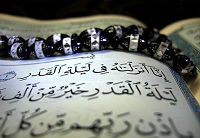 إِنَّا أَنزَلْنَٰهُ فِي لَيْلَةِ الْقَدْرِ
لَيْلَةُ الْقَدْرِ خَيْرٌ مِّنْ أَلْفِ
بِإِذْنِ رَبِّهِم مِّن كُلِّ